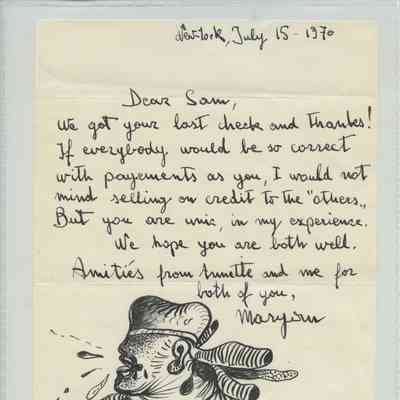 New-York, July 15 - 1970
Dear Sam,
We got your last check and thanks!
If everybody would be so correct
with payements as you, I would not
mind selling on credit to the "others„
But you are unic, in my experience.
We hope you are both well.
Amitiés from Annette and me for
both of you,